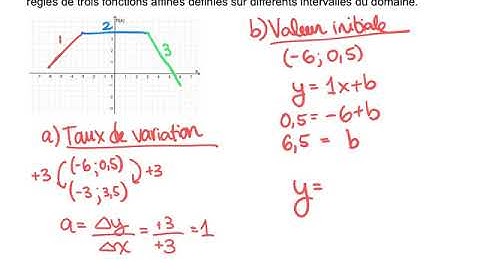 règles de trois fonctions affines définies sur différents intervalles du domaine.
1
2
3
a) Taux de variation
+3 ( (-6 ; 0,5) ) +3
(-3 ; 3,5)
a = Δy / Δx = +3 / +3 = 1
b) Valeur initiale
(-6 ; 0,5)
y = 1x + b
0,5 = -6 + b
6,5 = b
y =